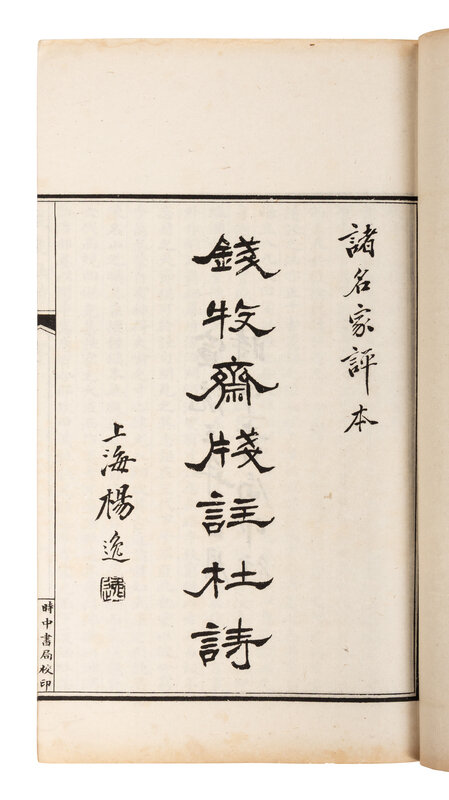 諸名家評本
錢牧齋牋註杜詩
上海楊逸
逸
時中書局校印